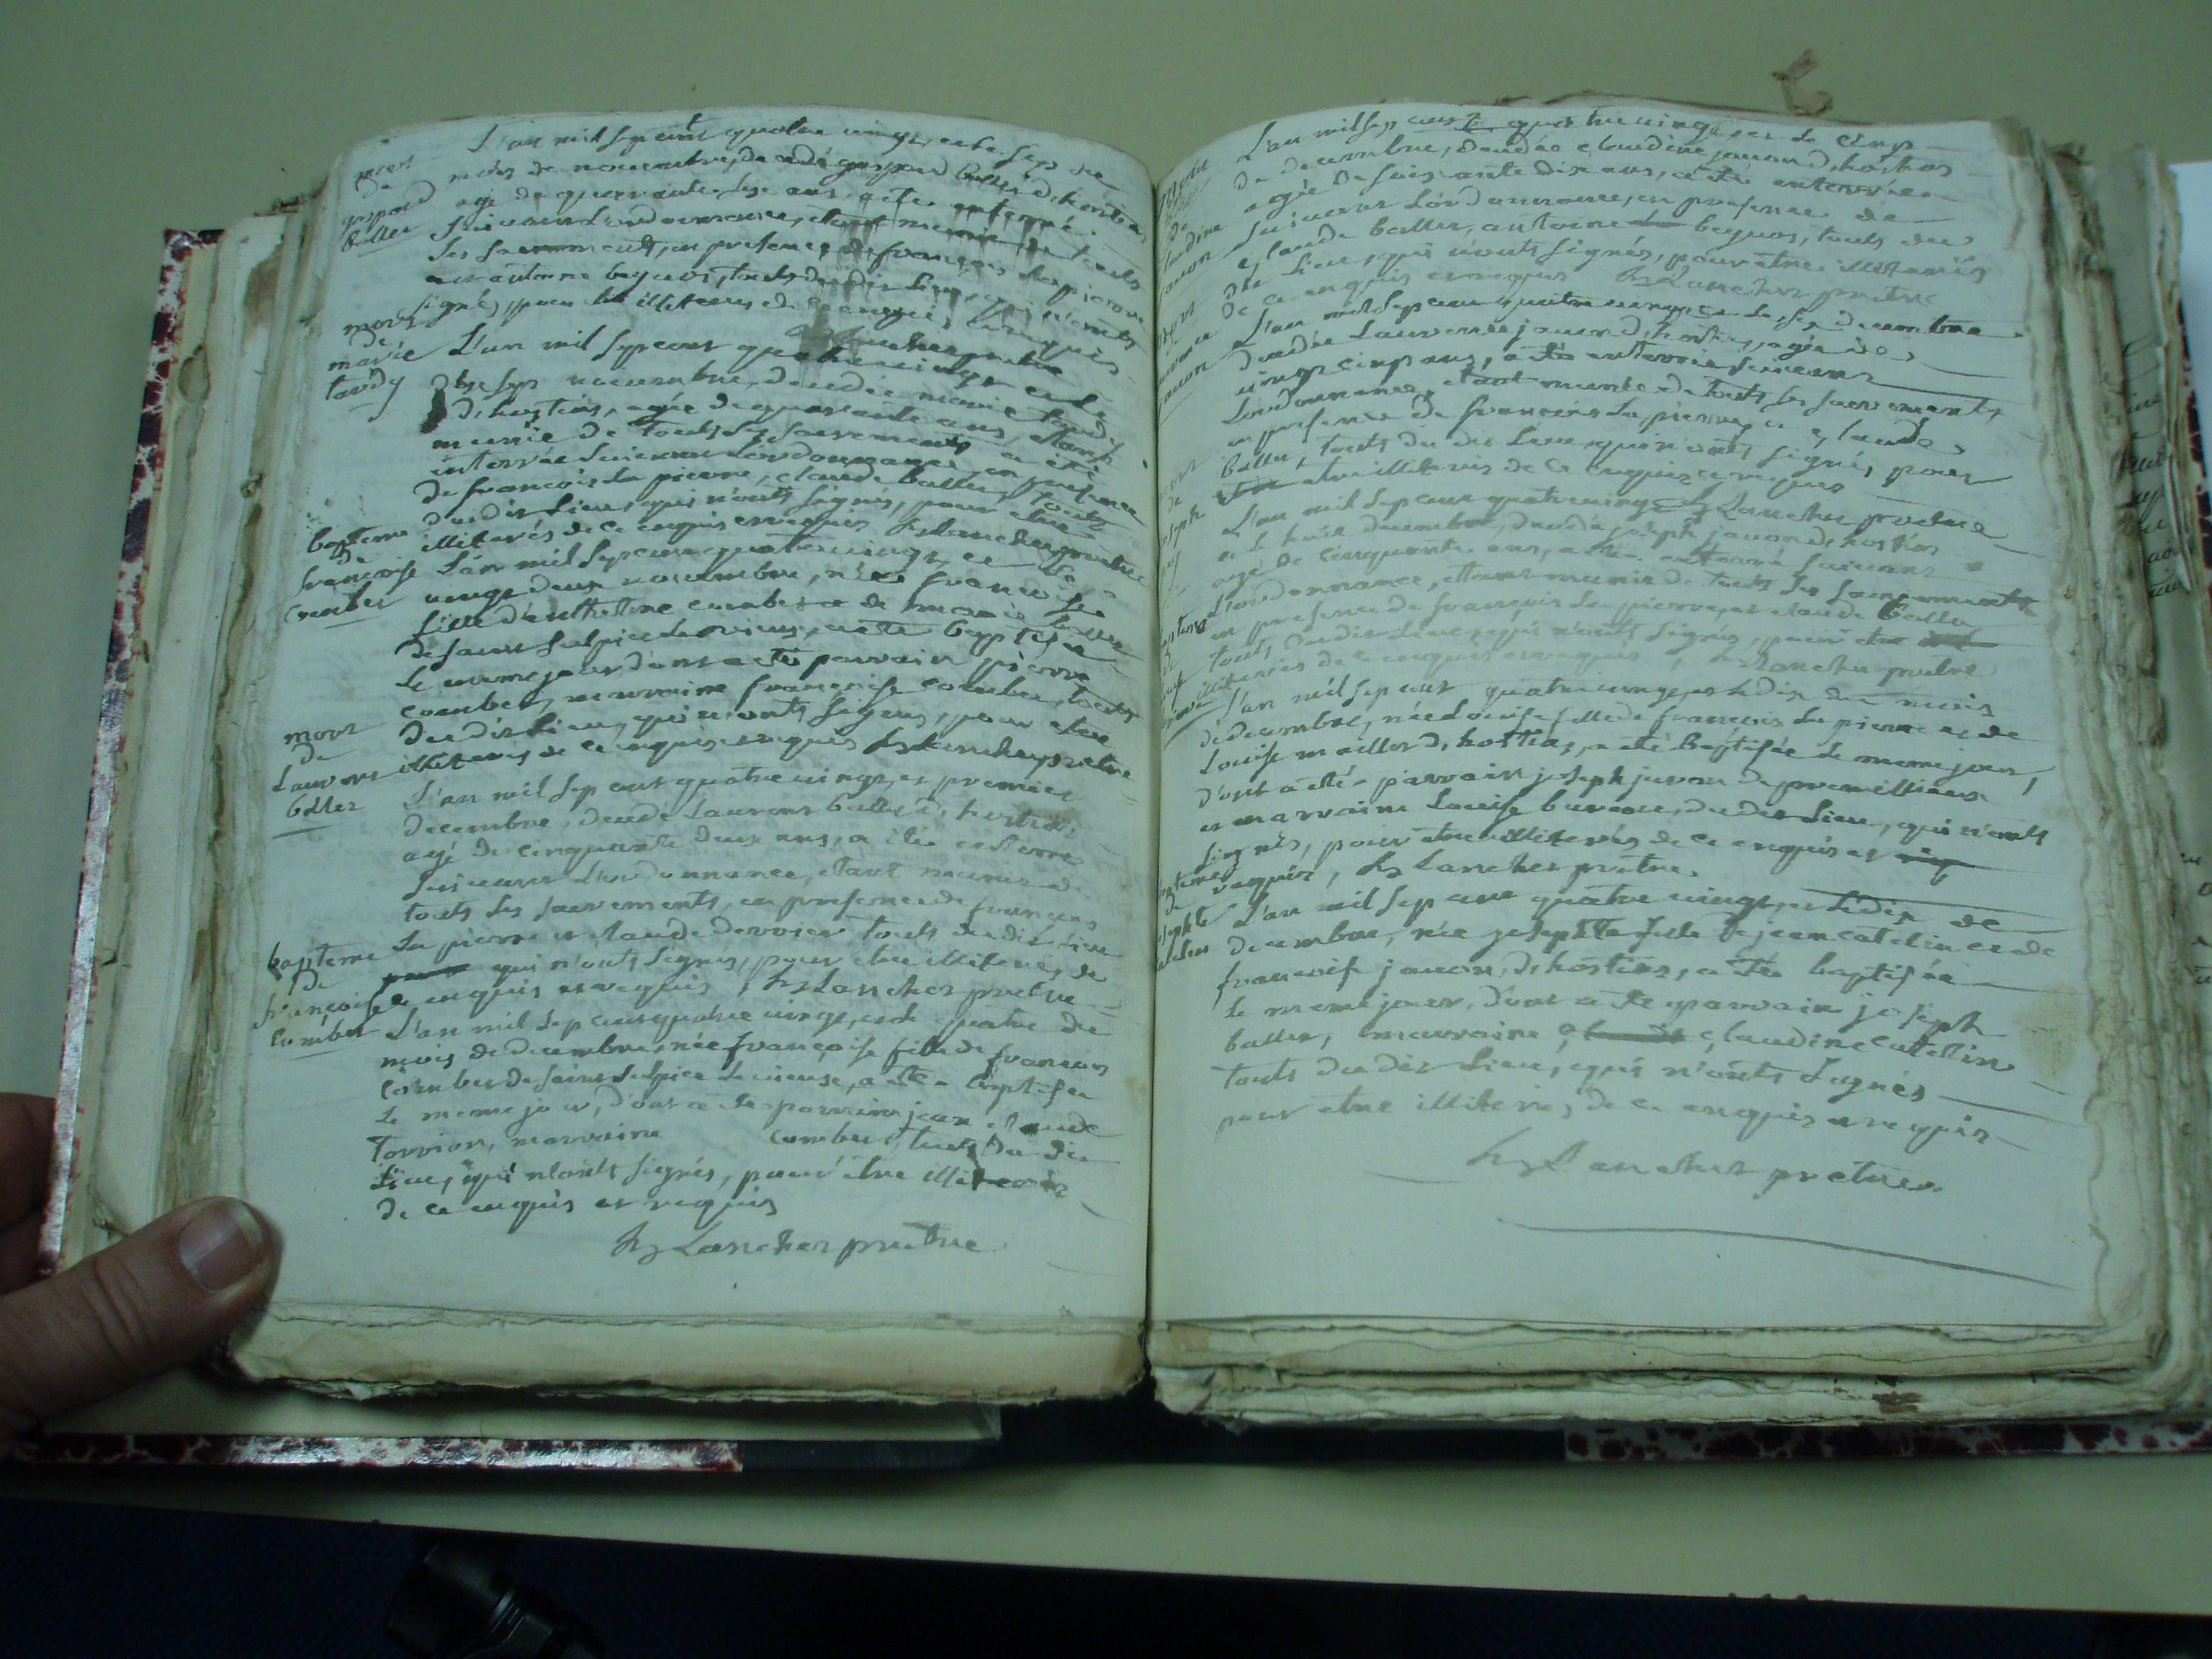 mort
de
gaspard
ballet
L'an mil sept cent quatre vingt, et le sept du
mois de novembre, decedé gaspard ballet d'hostias
agé de quarante ans, a été enterré
suivant L'ordonnance, étant munie de touts
Les sacrements, en presence de françois La pierre
et antoinne bequos, touts du dit Lieu, qui n'onts
signé, pour illiteres de ce enquis et requis
Lancher pretre
mort
de
marie
tardy
L'an mil sept cent quatre vingt et le
sept novembre, decedée marie tardy
d'hostias, agée de quarante ans, étant
munie de touts Les sacrements a été
enterrée suivant L'ordonnance, en presence
de françois La pierre, claude ballet, touts
du dit Lieu, qui n'onts signés, pour etre
illiterés de ce enquis et requis Lancher pretre
bapteme
de
françoise
cumbet
L'an mil sept cent quatre vingt, et le
vingt deux novembre, née françoise
fille d'anthelme cumbet et de marie ballet
de saint sulpice Le vieux, a été baptisée
Le meme jour, dont a été parrain pierre
cumbet, marraine françoise cumbet, touts
du dit Lieu, qui n'onts signés, pour etre
illiterés de ce enquis et requis Lancher pretre
mort
de
Laurent
ballet
L'an mil sept cent quatre vingt, et premier
decembre, decedé Laurent ballet d'hostias,
agé de cinquante deux ans, a été enterré
suivant L'ordonnance, étant munie de
touts Les sacrements, en presence de françois
La pierre et claude dervier touts du dit Lieu
qui n'onts signés, pour etre illiterés, de
ce enquis et requis, Lancher pretre
bapteme
de
françoise
cumbet
L'an mil sept cent quatre vingt, et le quatre du
mois de decembre, née françoise fille de françois
cumbet de saint sulpice Le vieux, a été baptisée
Le meme jour, dont a été parrain jean claude
torrion, marraine cumbet, touts du dit
Lieu, qui n'onts signés, pour être illiterés
de ce enquis et requis
Lancher pretre
mort
de
claudine
jauon
L'an mil sept cent quatre vingt, et le cinq
de decembre, decedée claudine jauon d'hostias
agée de soixante dix ans, a été enterrée
suivant L'ordonnance, en presence de
claude ballet, antoine bequos, touts du
dit Lieu, qui n'onts signés, pour être illiterés
de ce enquis et requis Lancher pretre
L'an mil sept cent quatre vingt, et le six decembre
decedée Laurence jauon d'hostias, agée de
vingt cinq ans, a été enterrée suivant
L'ordonnance, étant munie de touts Les sacrements,
en presence de françois La pierre, et claude
ballet, touts du dit Lieu, qui n'onts signés, pour
etre illiterés de ce enquis et requis
Lancher pretre
L'an mil sept cent quatre vingt
et le huit decembre, decedé joseph jauon d'hostias
agé de cinquante ans, a été enterré suivant
L'ordonnance, étant munie de touts Les sacrements
en presence de françois La pierre, et claude ballet
touts du dit Lieu, qui n'onts signés, pour etre
illiterés de ce enquis et requis, Lancher pretre
L'an mil sept cent quatre vingt, et le dix du mois
de decembre, née Louise fille de françois La pierre et de
Louise maillet d'hostias, a été baptisée Le meme jour,
dont a été parrain joseph juvon de premillieux
et marraine Louise, du dit Lieu, qui n'onts
signés, pour etre illiterés de ce enquis et
requis, Lancher pretre
bapteme
de
josephte
catelin
L'an mil sept cent quatre vingt, et Le dix de
decembre, née josephte fille de jean catelin et de
françoise jauon, d'hostias, a été baptisée
Le meme jour, dont a été parrain joseph
ballet, marraine claudine catellin
touts du dit Lieu, qui n'onts signés
pour etre illiterés, de ce enquis et requis
Lancher pretre